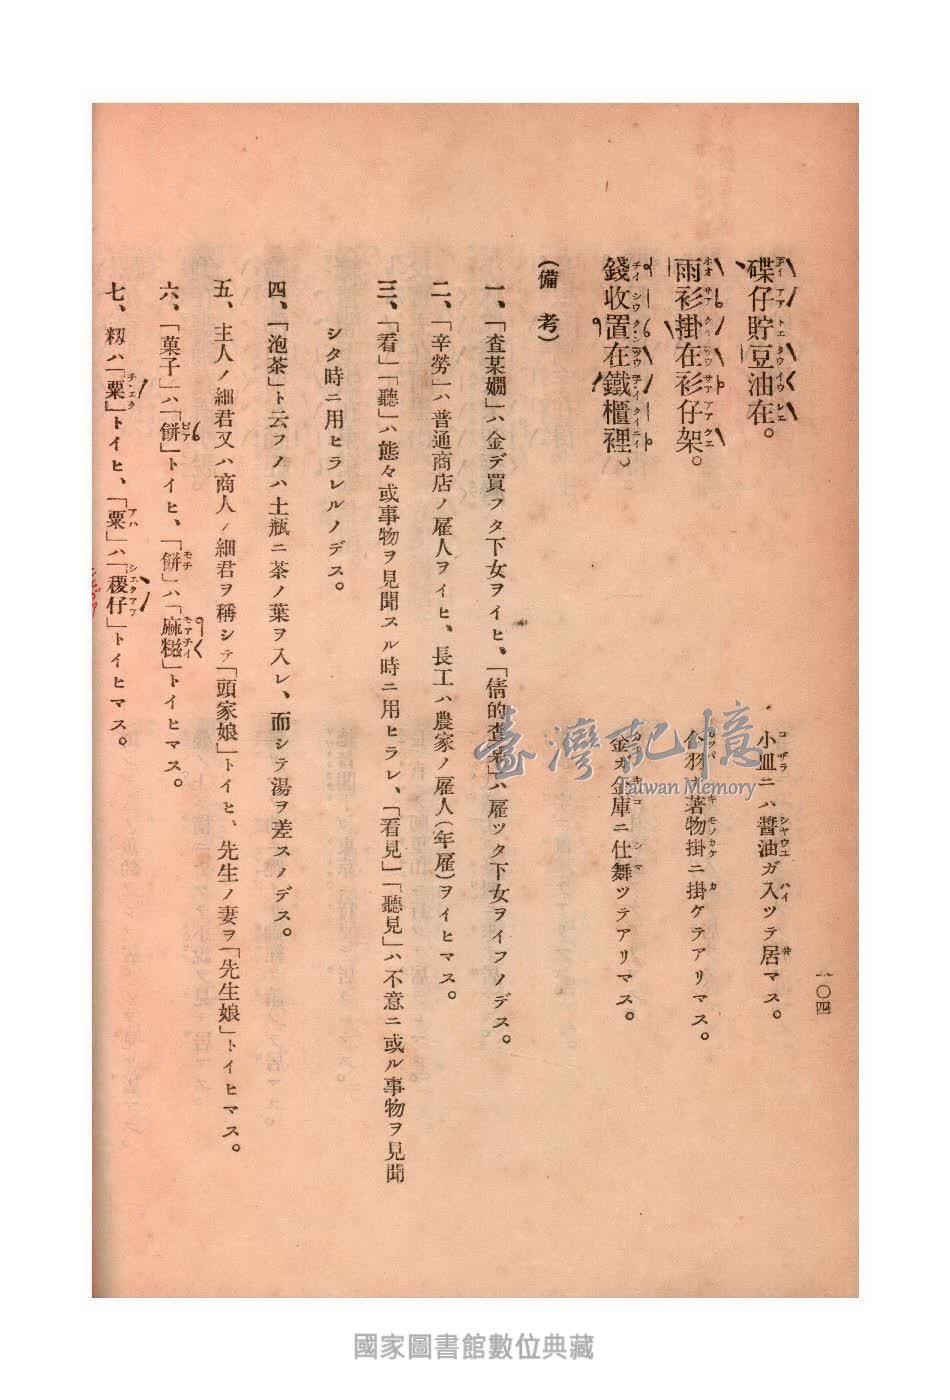 一〇四
碟仔貯豆油在。
小皿ニハ醬油ガ入ツテ居マス。
雨衫掛在衫仔架。
合羽ガ著物掛ニ掛ケテアリマス。
錢收置在鐵櫃裡。
金ガ金庫ニ仕舞ツテアリマス。
(備考)
一、「査某嫺」ハ金デ買フタ下女ヲイヒ、「倩的査某」ハ雇ツタ下女ヲイフノデス。
二、「辛勞」ハ普通商店ノ雇人ヲイヒ、長工ハ農家ノ雇人(年雇)ヲイヒマス。
三、「看」「聽」ハ態々或事物ヲ見聞スル時ニ用ヒラレ、「看見」「聽見」ハ不意ニ或ル事物ヲ見聞
シタ時ニ用ヒラレルノデス。
四、「泡茶」ト云フノハ土瓶ニ茶ノ葉ヲ入レ、而シテ湯ヲ差スノデス。
五、主人ノ細君又ハ商人ノ細君ヲ稱シテ「頭家娘」トイヒ、先生ノ妻ヲ「先生娘」トイヒマス。
六、「菓子」ハ「餅」トイヒ、「餅」ハ「麻糍」トイヒマス。
七、籾ハ「粟」トイヒ、「粟」ハ「稷仔」トイヒマス。
臺灣記憶
Taiwan Memory
國家圖書館數位典藏